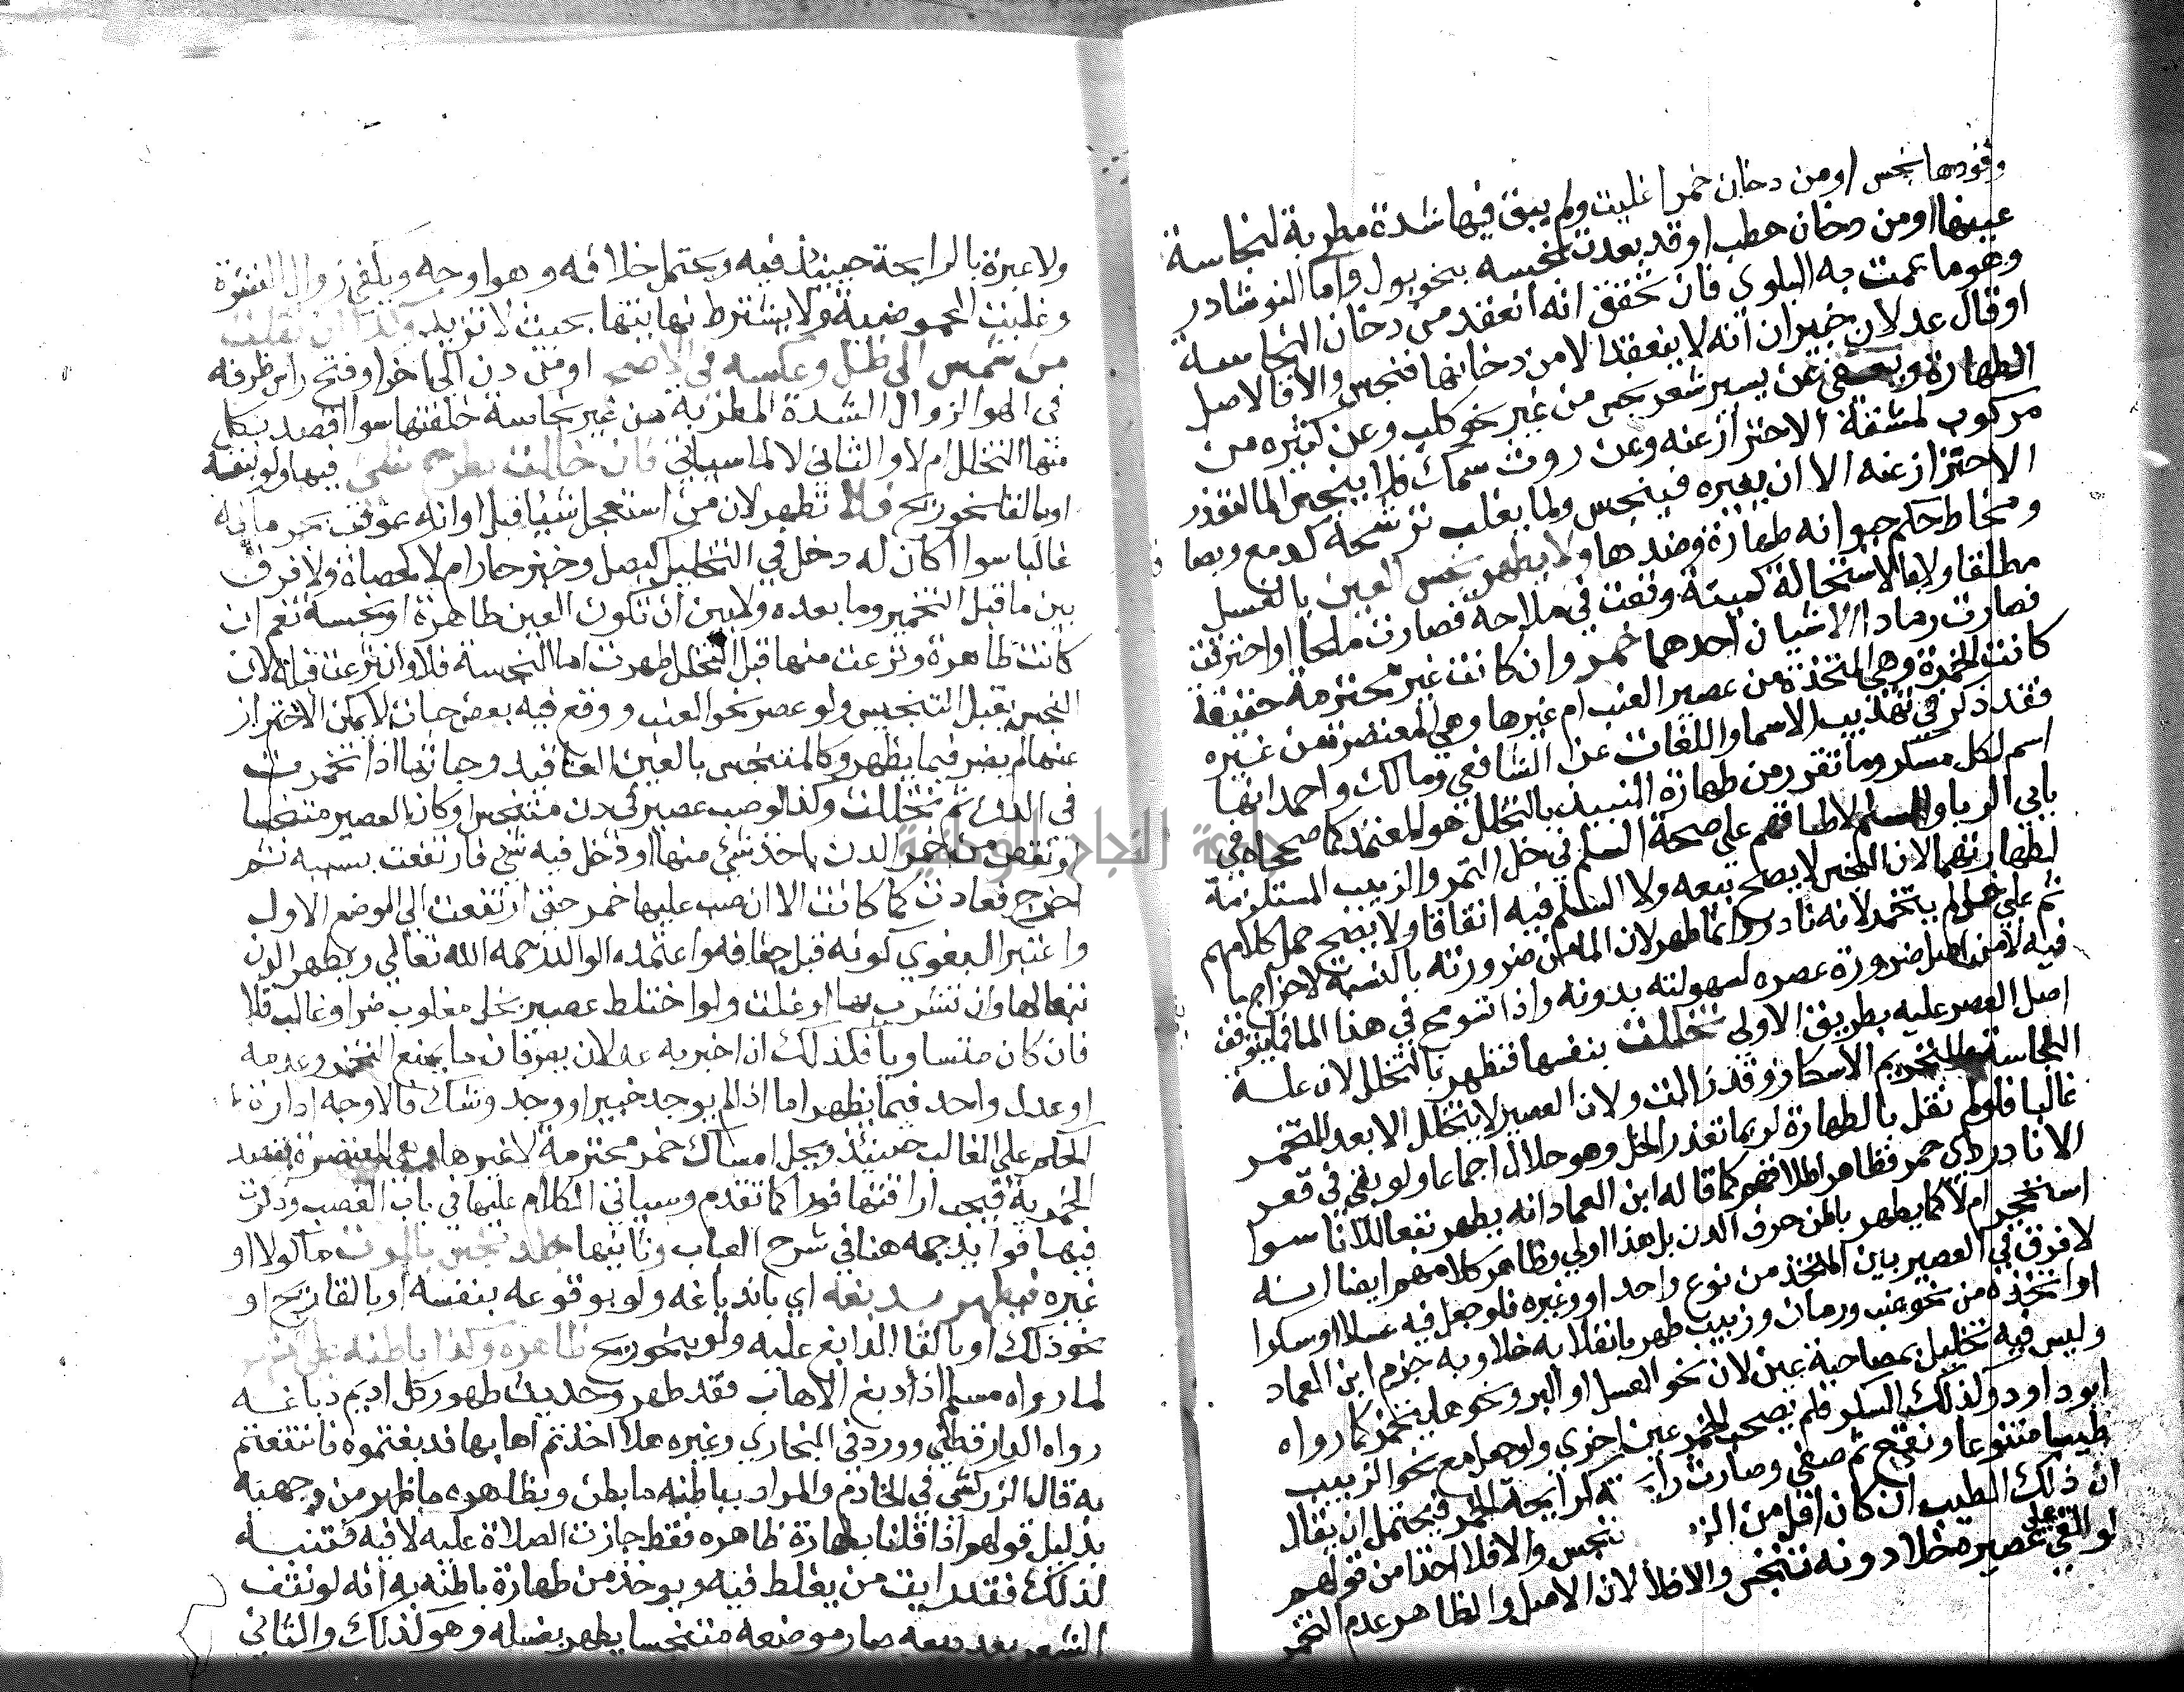 وقودها نجس او من دخان خمر اغليت ولم يبق فيها شدة مطربة لنجاسة
عينها او من دخان حطب اوقد بعد تنجسه بنحو بول واما النوشادر
وهو ما عمت به البلوي فان تحقق انه انعقد من دخان النجاسة
او قال عدلان خبيران انه لا ينعقد الا من دخانها فنجس والا فالاصل
الطهارة ويعفي عن يسير شعر نجس من غير نحو كلب وعن كثيره من
مركوب لمشقة الاحتراز عنه وعن روث سمك فلا ينجس الما لتعذر
الاحتراز عنه الا ان يغيره فينجس ولما يغلب ترشحه كدمع وبصا
ومخاط حكم حيوانه طهارة وضدها ولا يطهر نجس العين بالغسل
مطلقا ولا بالاستحالة كميتة وقعت في ملاحة فصارت ملحا او احترقت
فصارت رمادا الا شيان احدهما خمر وان كانت غير محترمة حقيقة
كانت الخمرة وهي المتخذة من عصير العنب ام غيرها وهي المعتصرة من غيره
فقد ذكر في تهذيب الاسما واللغات عن الشافعي ومالك واحمد انها
اسم لكل مسكر وما تقرر من طهارة النبيذ بالتخلل هو المعتمد كما صححاه في
بابي الربا والسلم لاطباقهم علي صحة السلم في خل التمر والزبيب المستلزمة
لطهارتهما لان النجس لا يصح بيعه ولا السلم فيه اتفاقا ولا يصح حمل كلامهم
ثم علي خل لم يتخمر لانه نادر وانما طهر لان الما من ضرورته بالنسبة لاخراج ما
فيه لا من اصل ضرورة عصره لسهولته بدونه واذا تسومح في هذا الما فما يتوقف
اصل العصر عليه بطريق الاولي تخللت بنفسها فتطهر بالتخلل لان علة
النجاسة والتحريم الاسكار وقد زالت ولان العصير لا يتخلل الا بعد التخمر
غالبا فلو لم نقل بالطهارة لربما تعذر الخل وهو حلال اجماعا ولو بقي في قعر
الانا دردي خمر فظاهر اطلاقهم كما قاله ابن العماد انه يطهر تبعا للانا سوا
استحجر ام لا كما يطهر باطن جرف الدن بل هذا اولي وظاهر كلامهم ايضا انه
لا فرق في العصير بين المتخذ من نوع واحد او غيره فلو جعل فيه عسلا او سكرا
او اتخذه من نحو عنب ورمان وزبيب طهر بانقلابه خلا وبه جزم ابن العماد
وليس فيه تخليل بمصاحبة عين لان نحو العسل او البر ونحوهما يتخمر كما رواه
ابو داود وكذلك السكر فلم تصحب الخمر عين اخري ولو جعل مع نحو الزبيب
طيبا متنوعا ونقع ثم صفي وصارت رايحته كرايحة الخمر فيحتمل ان يقال
ان ذلك الطيب ان كان اقل من الز تنجس والا فلا اخذا من قولهم
لو القي علي عصير خلا دونه تنجس والا فلا لان الاصل والظاهر عدم التخمر
ولا عبرة بالرايحة حينيذ فيه ويحتمل خلافه وهو اوجه ويكفي زوال النشوة
وغلبت الحموضة ولا يشترط نهايتها بحيث لا تزيد وكذا ان نقلت
من شمس الي ظل وعكسه في الاصح او من دن الي اخر او فتح راس ظرفه
في الهوا لزوال الشدة المطربة من غير نجاسة خلفتها سوا قصد بكل
منها التخلل ام لا والثاني لا لما سياتي فان خللت بطرح شي فيها ولو بنفسه
او بالقا نحو ريح فلا تطهر لان من استعجل شيا قبل اوانه عوقب بحرمانه
غالبا سوا اكان له دخل في التخليل كبصل وخبز حار ام لا كحصاة ولا فرق
بين ما قبل التخمر وما بعده ولا بين ان تكون العين طاهرة او نجسة نعم ان
كانت طاهرة ونزعت منها قبل التخلل طهرت اما النجسة فلا وان نزعت قبله لان
النجس يقبل التنجيس ولو عصر نحو العنب ووقع فيه بعض حبات لا يمكن الاحتراز
عنها لم يضر فيما يظهر وكالمتنجس بالعين العناقيد وحباتها اذا تخمرت
في الدن ثم تخللت وكذا لو صب عصير في دن متنجس او كان العصير متنجسا
او نقص من خمر الدن باخذ شي منها او ادخل فيه شي فارتفعت بسببه ثم
اخرج فعادت كما كانت الا ان صب عليها خمر حتي ارتفعت الي الموضع الاول
واعتبر البغوي كونه قبل جفافه واعتمده الوالد رحمه الله تعالي ويطهر الدن
تبعا لها وان تشرب بها او غلت ولو اختلط عصير بخل مغلوب ضر او غالب فلا
فان كان متساويا فكذلك ان اخبر به عدلان يعرفان ما يمنع التخمر وعدمه
او عدل واحد فيما يظهر اما اذا لم يوجد خبير او وجد وشك فالاوجه ادارة
الحكم علي الغالب حينيذ ويحل امساك خمر محترمة لا غيرها وهي المعتصرة بقصد
الخمرية فيجب اراقتها فورا كما تقدم وسياتي الكلام عليها في باب الغصب وذكرت
فيها فوايد جمه هنا في شرح العباب وثانيها جلد نجس بالموت ماكولا او
غيره فيطهر بدبغه اي باندباغه ولو بوقوعه بنفسه او بالقا ريح او
نحو ذلك او بالقا الدابغ عليه ولو بنحو ريح ظاهره وكذا باطنه علي المشهور
لما رواه مسلم اذا دبغ الاهاب فقد طهر وحديث طهور كل اديم دباغه
رواه الدارقطني وورد في البخاري وغيره هلا اخذتم اهابها فدبغتموه فانتفعتم
به قال الزركشي في الخادم والمراد بباطنه ما بطن وبظاهره ما ظهر من وجهيه
بدليل قولهم اذا قلنا بطهارة ظاهره فقط جازت الصلاة عليه لا فيه فتنبه
لذلك فقد رايت من يغلط فيه ويوخذ من طهارة باطنه به انه لو نتف
الشعر بعد دبغه صار موضعه متنجسا يطهر بغسله وهو كذلك والثاني
جامعة النجاح الوطنية